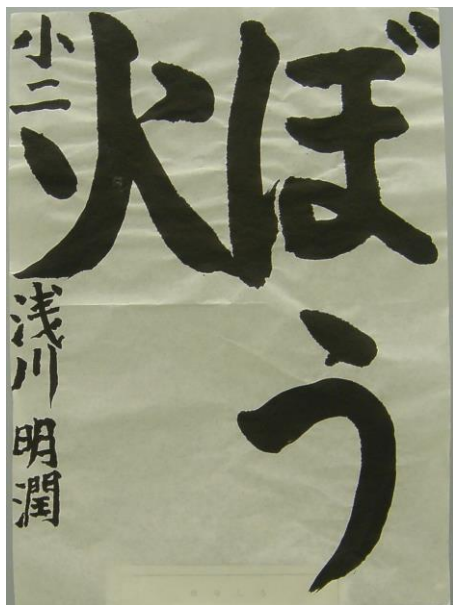 ぼう
火
小二 浅川 明潤